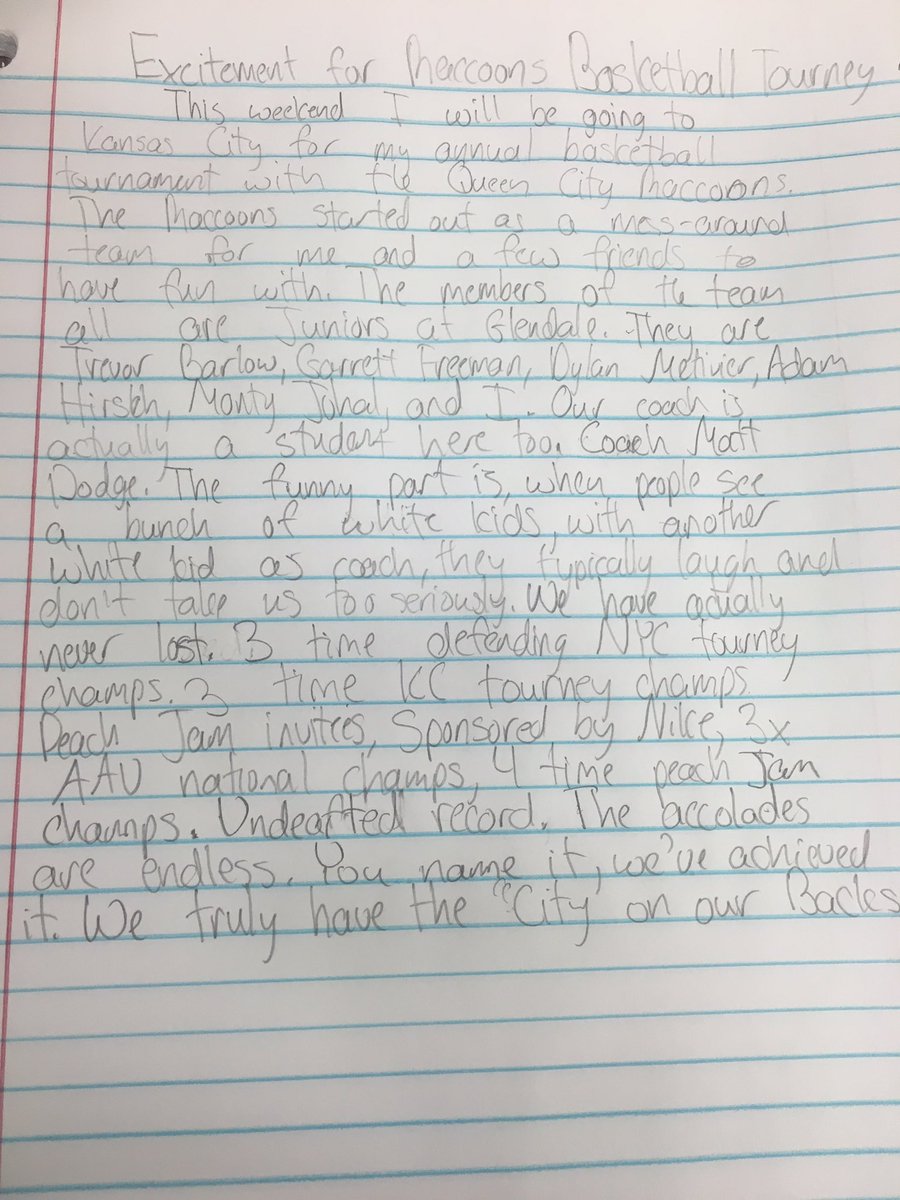 Excitement for Maccoons Basketball Tourney
This weekend I will be going to
Kansas City for my annual basketball
tournament with the Queen City Maccoons.
The Maccoons started out as a mes-around
team for me and a few friends to
have fun with. The members of the team
all are Juniors at Glendale. They are
Trevor Barlow, Garrett Freeman, Dylan Metivier, Adam
Hirsch, Monty Johal, and I. Our coach is
actually a student here too. Coach Matt
Dodge. The funny part is, when people see
a bunch of white kids, with another
white kid as coach, they typically laugh and
don't take us too seriously. We have actually
never lost. 3 time defending NPC tourney
champs. 3 time KC tourney champs.
Peach Jam invitees, Sponsored by Nike, 3x
AAU national champs, 4 time peach Jam
champs. Undeafted record. The accolades
are endless. You name it, we've achieved
it. We truly have the "City" on our Backs